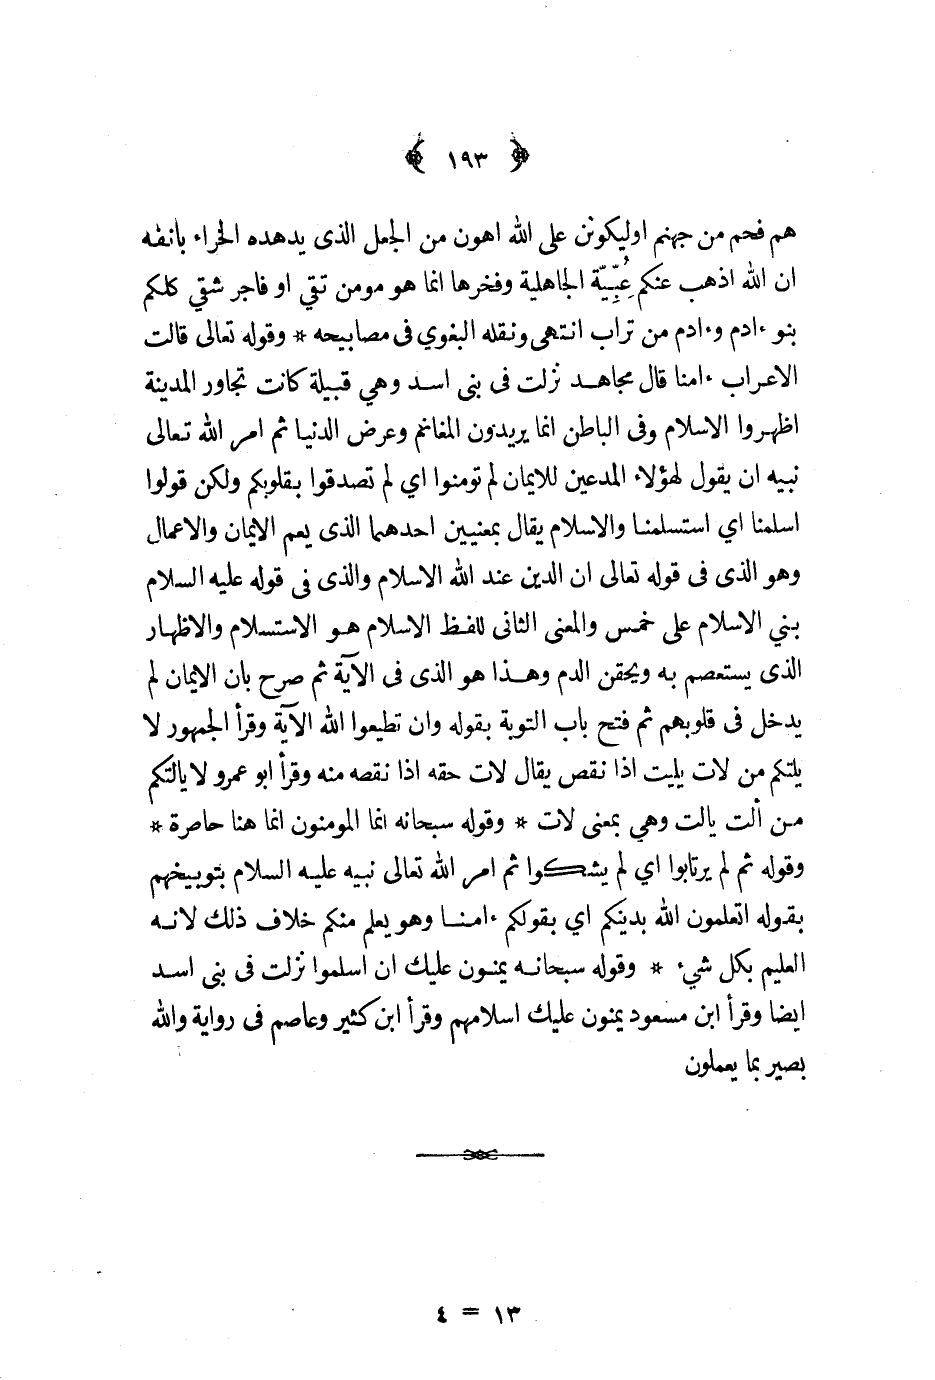 ﴿ ١٩٣ ﴾
هم فحم من جهنم اوليكونن على الله اهون من الجعل الذى يدهده الخراء بأنفه
ان الله اذهب عنكم عُبِّيَّة الجاهلية وفخرها انما هو مومن تقي او فاجر شقي كلكم
بنو ءادم وءادم من تراب انتهى ونقله البغوي فى مصابيحه * وقوله تعالى قالت
الاعراب ءامنا قال مجاهد نزلت فى بنى اسد وهي قبيلة كانت تجاور المدينة
اظهروا الاسلام وفى الباطن انما يريدون المغانم وعرض الدنيا ثم امر الله تعالى
نبيه ان يقول لهؤلاء المدعين للايمان لم تومنوا اي لم تصدقوا بقلوبكم ولكن قولوا
اسلمنا اي استسلمنا والاسلام يقال بمعنيين احدهما الذى يعم الايمان والاعمال
وهو الذى فى قوله تعالى ان الدين عند الله الاسلام والذى فى قوله عليه السلام
بني الاسلام على خمس والمعنى الثانى للفظ الاسلام هو الاستسلام والاظهار
الذى يستعصم به ويحقن الدم وهذا هو الذى فى الآية ثم صرح بان الايمان لم
يدخل فى قلوبهم ثم فتح باب التوبة بقوله وان تطيعوا الله الآية وقرأ الجمهور لا
يلتكم من لات يليت اذا نقص يقال لات حقه اذا نقصه منه وقرأ ابو عمرو لا يالتكم
من ألت يالت وهي بمعنى لات * وقوله سبحانه انما المومنون انما هنا حاصرة *
وقوله ثم لم يرتابوا اي لم يشكوا ثم امر الله تعالى نبيه عليه السلام بتوبيخهم
بقوله اتعلمون الله بدينكم اي بقولكم ءامنا وهو يعلم منكم خلاف ذلك لانه
العليم بكل شيء * وقوله سبحانه يمنون عليك ان اسلموا نزلت فى بنى اسد
ايضا وقرأ ابن مسعود يمنون عليك اسلامهم وقرأ ابن كثير وعاصم فى رواية والله
بصير بما يعملون
١٣ = ٤